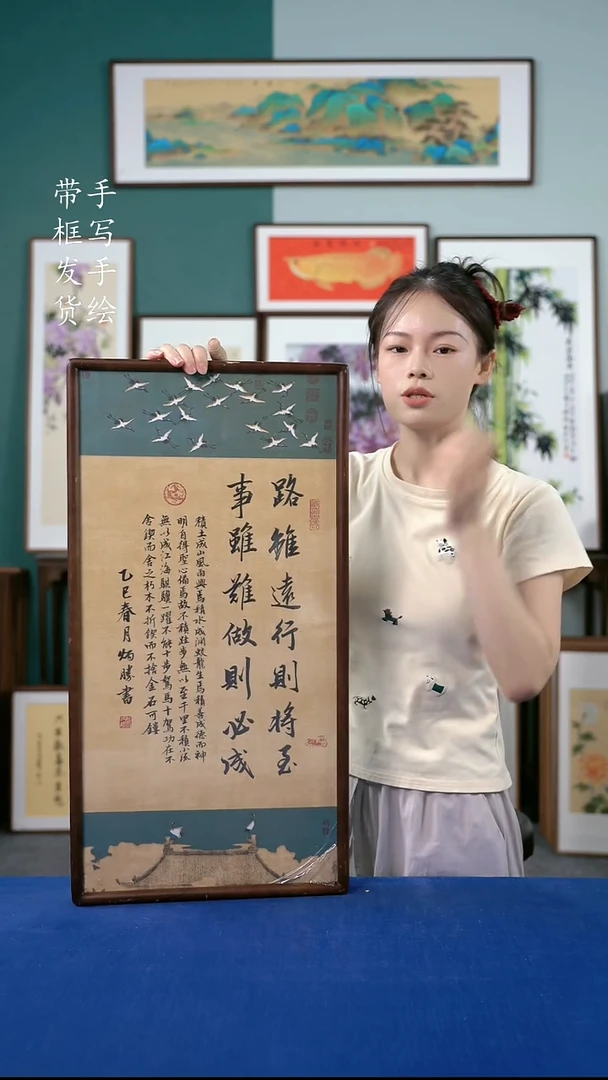 手写手绘
带框发货
路雖遠行則將至
事雖難做則必成
積土成山風雨興焉積水成渊蛟龍生焉積善成德而神
明自得聖心備焉故不積跬步無以至千里不積小流
無以成江海騏驥一躍不能十步駑馬十駕功在不
舍鍥而舍之朽木不折鍥而不捨金石可鏤
乙巳春月炳勝書